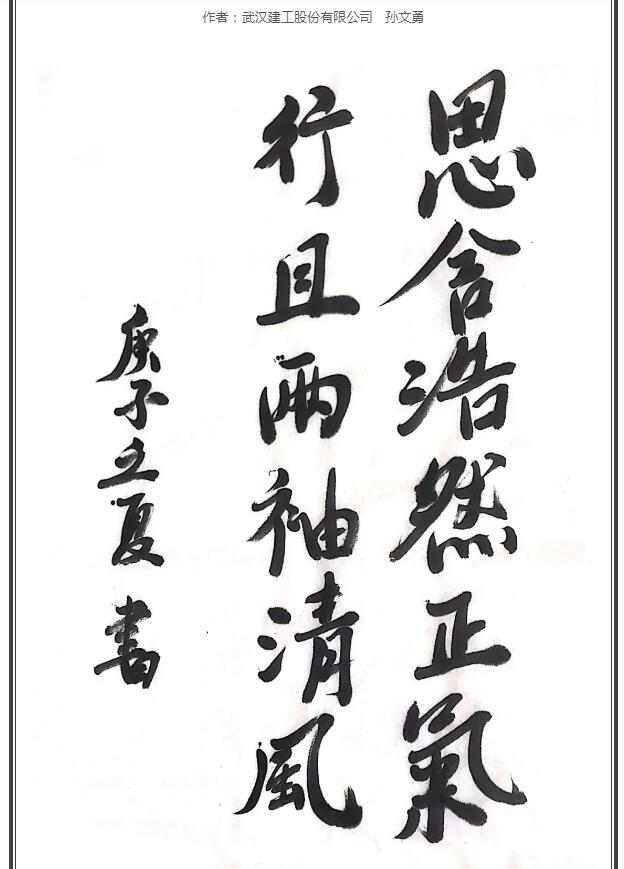 作者：武汉建工股份有限公司 孙文勇
思含浩然正氣
行且两袖清风
庚子之夏 書